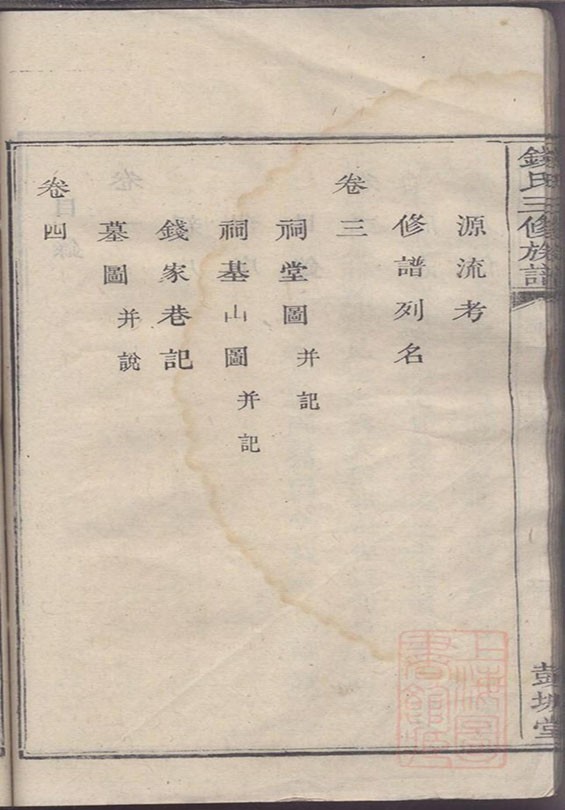 錢氏三修族譜
彭城堂
源流考
修譜列名
卷三
祠堂圖并記
祠基山圖并記
錢家巷記
墓圖并說
卷四
上海圖書館藏